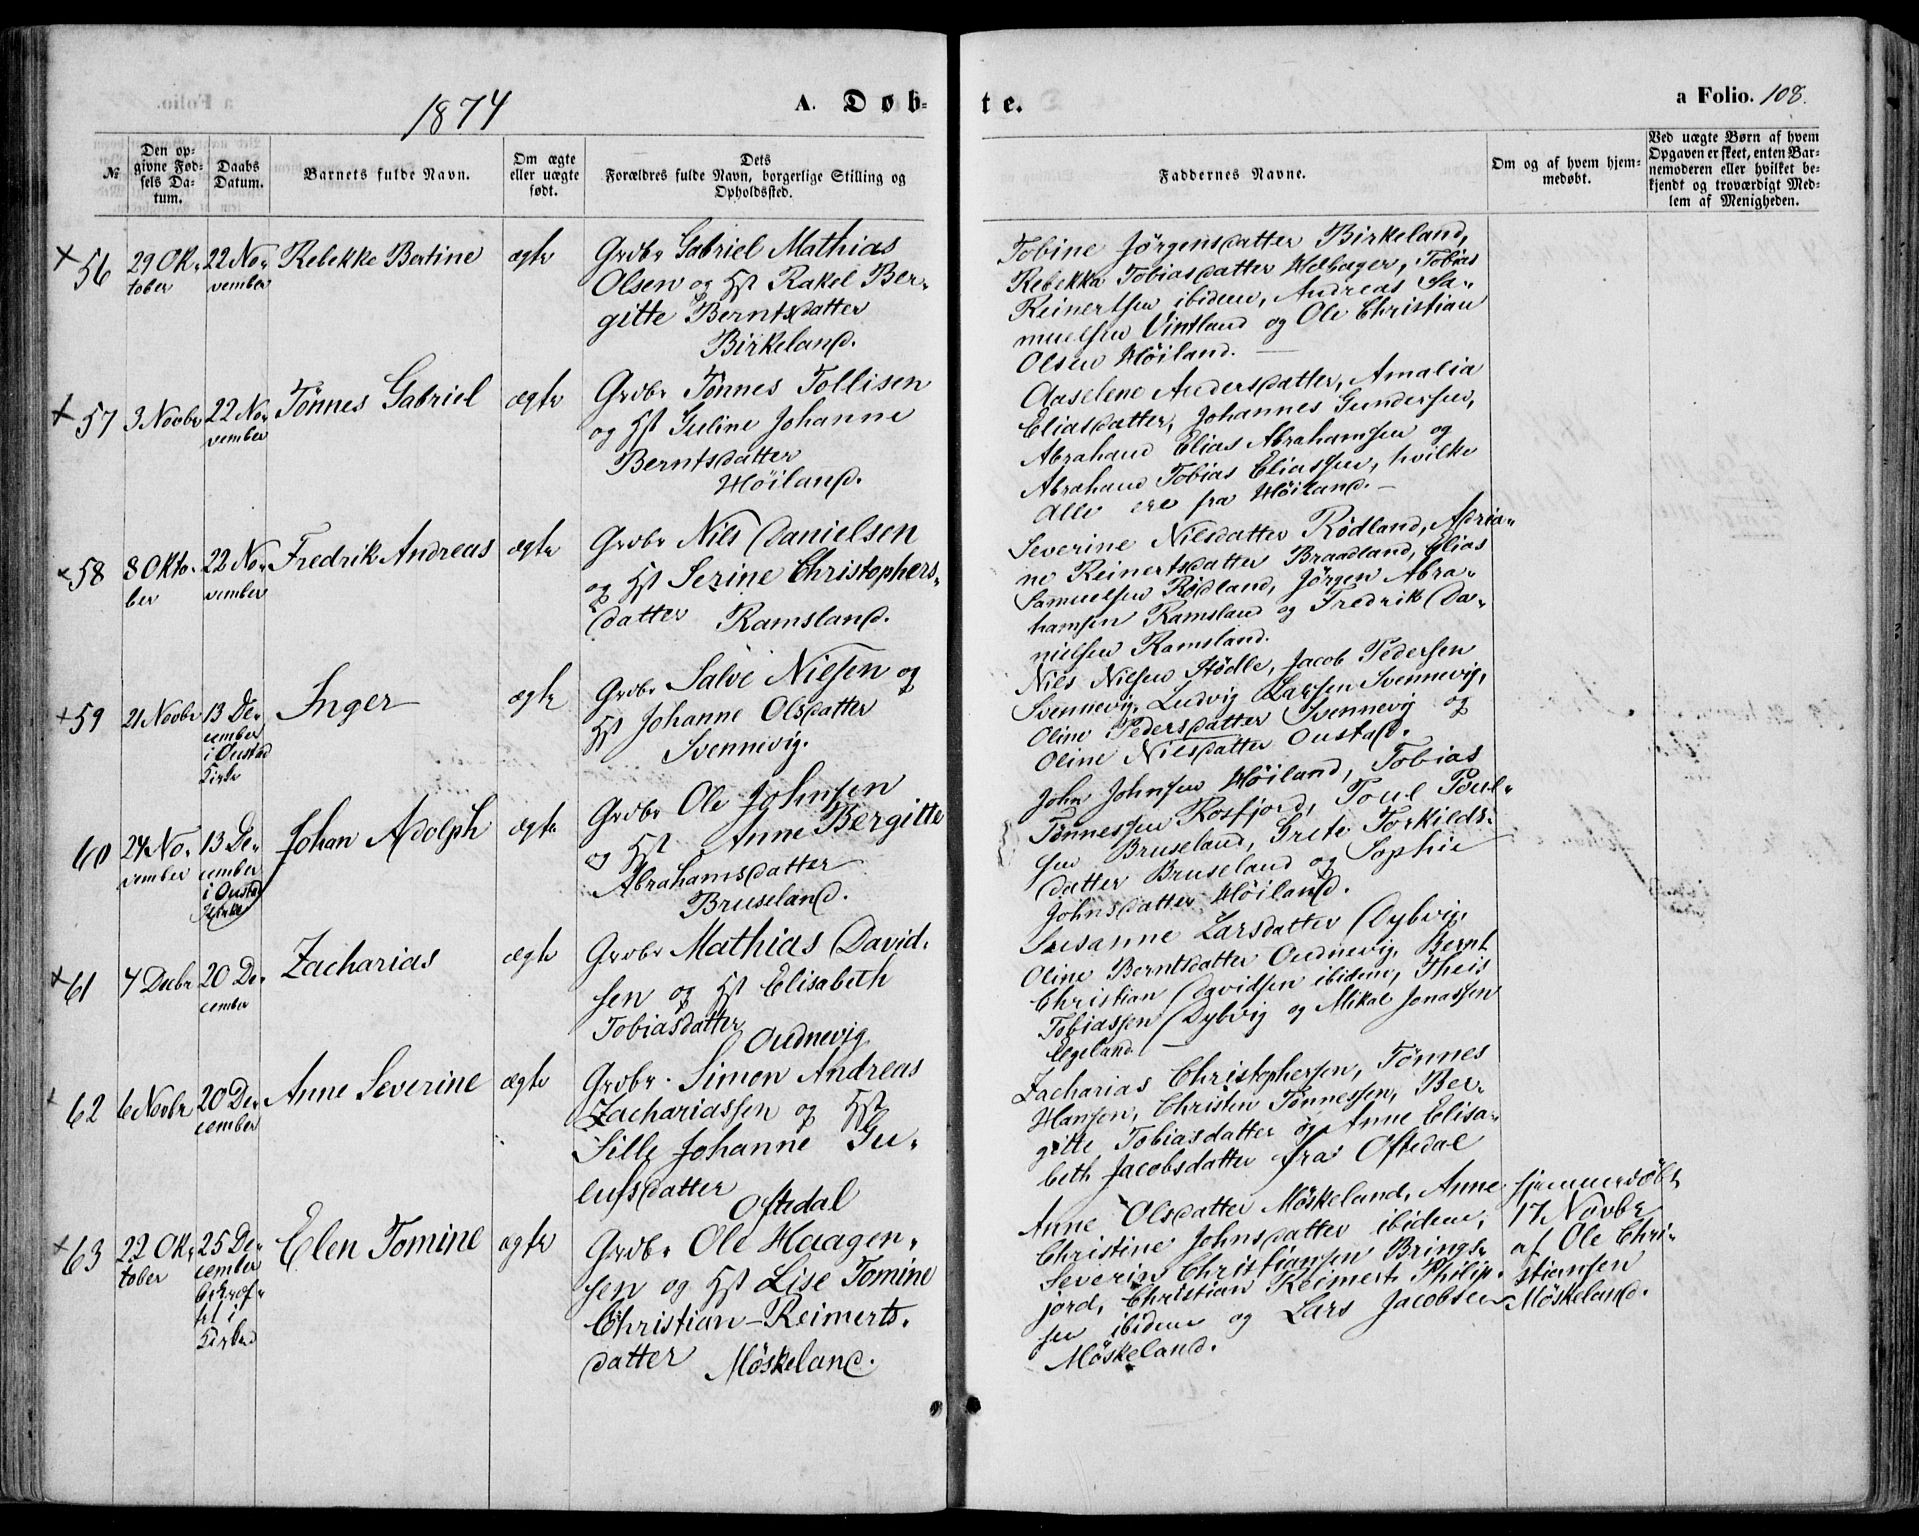 1874
A. Døb-
te.
a Folio. 108.
№
Den op-
givne Fød-
sels Da-
tum.
Daabs
Datum.
Barnets fulde Navn.
Om ægte
eller uægte
født.
Dets
Forældres fulde Navn, borgerlige Stilling og
Opholdssted.
Faddernes Navne.
Om og af hvem hjem-
medøbt.
Ved uægte Børn af hvem
Opgaven er skeet, enten Bar-
nemoderen eller hvilket be-
kjendt og troværdigt Med-
lem af Menigheden.
56
29 Ok-
tober
22 No-
vember
Rebekke Bertine
ægte
Grdbr Gabriel Mathias
Olsen og Hst Rakel Ber-
gitte Berntsdatter
Birkeland.
Tobine Jörgensdatter Birkeland,
Rebekka Tobiasdatter Helvager, Tobias
Reinertsen ibidem, Andreas Sa-
muelsen Vintland og Ole Christian
Olsen Höiland.
57
3 Novbr
22 No-
vember
Tönnes Gabriel
ægte
Grdbr Tönnes Tollisen
og Hst Guline Johanne
Berntsdatter
Höiland.
Aaselene Andersdatter, Amalia
Eliasdatter, Johannes Gundersen,
Abraham Elias Abrahamsen og
Abraham Tobias Eliassen, hvilke
Alle ere fra Höiland.
58
8 Okto-
ber
22 No-
vember
Fredrik Andreas
ægte
Grdbr Nils Danielsen
og Hst Serine Christophers-
datter Ramsland.
Severine Nilsdatter Rödland, Adria-
ne Reinertsdatter Braadland, Elias
Samuelsen Rödland, Jörgen Abra-
hamsen Ramsland og Fredrik Da-
nielsen Ramsland.
59
21 Novbr
13 De-
cember
i Oustad
Kirke
Inger
ægte
Grdbr Salve Nielsen og
Hst Johanne Olsdatter
Svennevig.
Nils Nielsen Stödle, Jacob Pedersen
Svennevig, Ludvig Larsen Svennevig,
Oline Pedersdatter Svennevig og
Oline Nilsdatter Oustad.
60
24 No-
vember
13 De-
cember
i Oustad
Kirke
Johan Adolph
ægte
Grdbr Ole Johnsen
og Hst Anne Bergitte
Abrahamsdatter
Bruseland.
John Johnsen Höiland, Tobias
Tönnessen Rosfjord, Poul Poul-
sen Bruseland, Grete Torkilds-
datter Bruseland og Sophie
Johnsdatter Höiland.
61
7 Decbr
20 De-
cember
Zacharias
ægte
Grdbr Mathias David-
sen og Hst Elisabeth
Tobiasdatter
Oudnevig
Susanne Larsdatter Dybvig,
Oline Berntsdatter Oudnevig, Bernt
Christian Davidsen ibidem, Theis
Tobiassen Dybvig og Mikal Jonassen
Egeland.
62
6 Novbr
20 De-
cember
Anne Severine
ægte
Grdbr. Simon Andreas
Zachariassen og Hst
Sille Johanne Gu-
lufsdatter
Oftedal
Zacharias Christophersen, Tönnes
Hansen, Christen Tönnessen, Ber-
gitte Tobiasdatter og Anne Elisa-
beth Jacobsdatter fra Oftedal
63
22 Ok-
tober
25 De-
cember
bekræf-
tet i
Kirken
Elen Tomine
ægte
Grdbr Ole Haagen-
sen og Hst Lise Tomine
Christian-Reimerts-
datter Möskeland.
Anne Olsdatter Möskeland, Anne
Christine Johnsdatter ibidem,
Severin Christiansen Brings-
jord, Christian Reimert Philip-
sen ibidem og Lars Jacobsen
Möskeland.
Hjemmedöbt
17 Novbr
af Ole Chri-
stiansen
Möskeland.